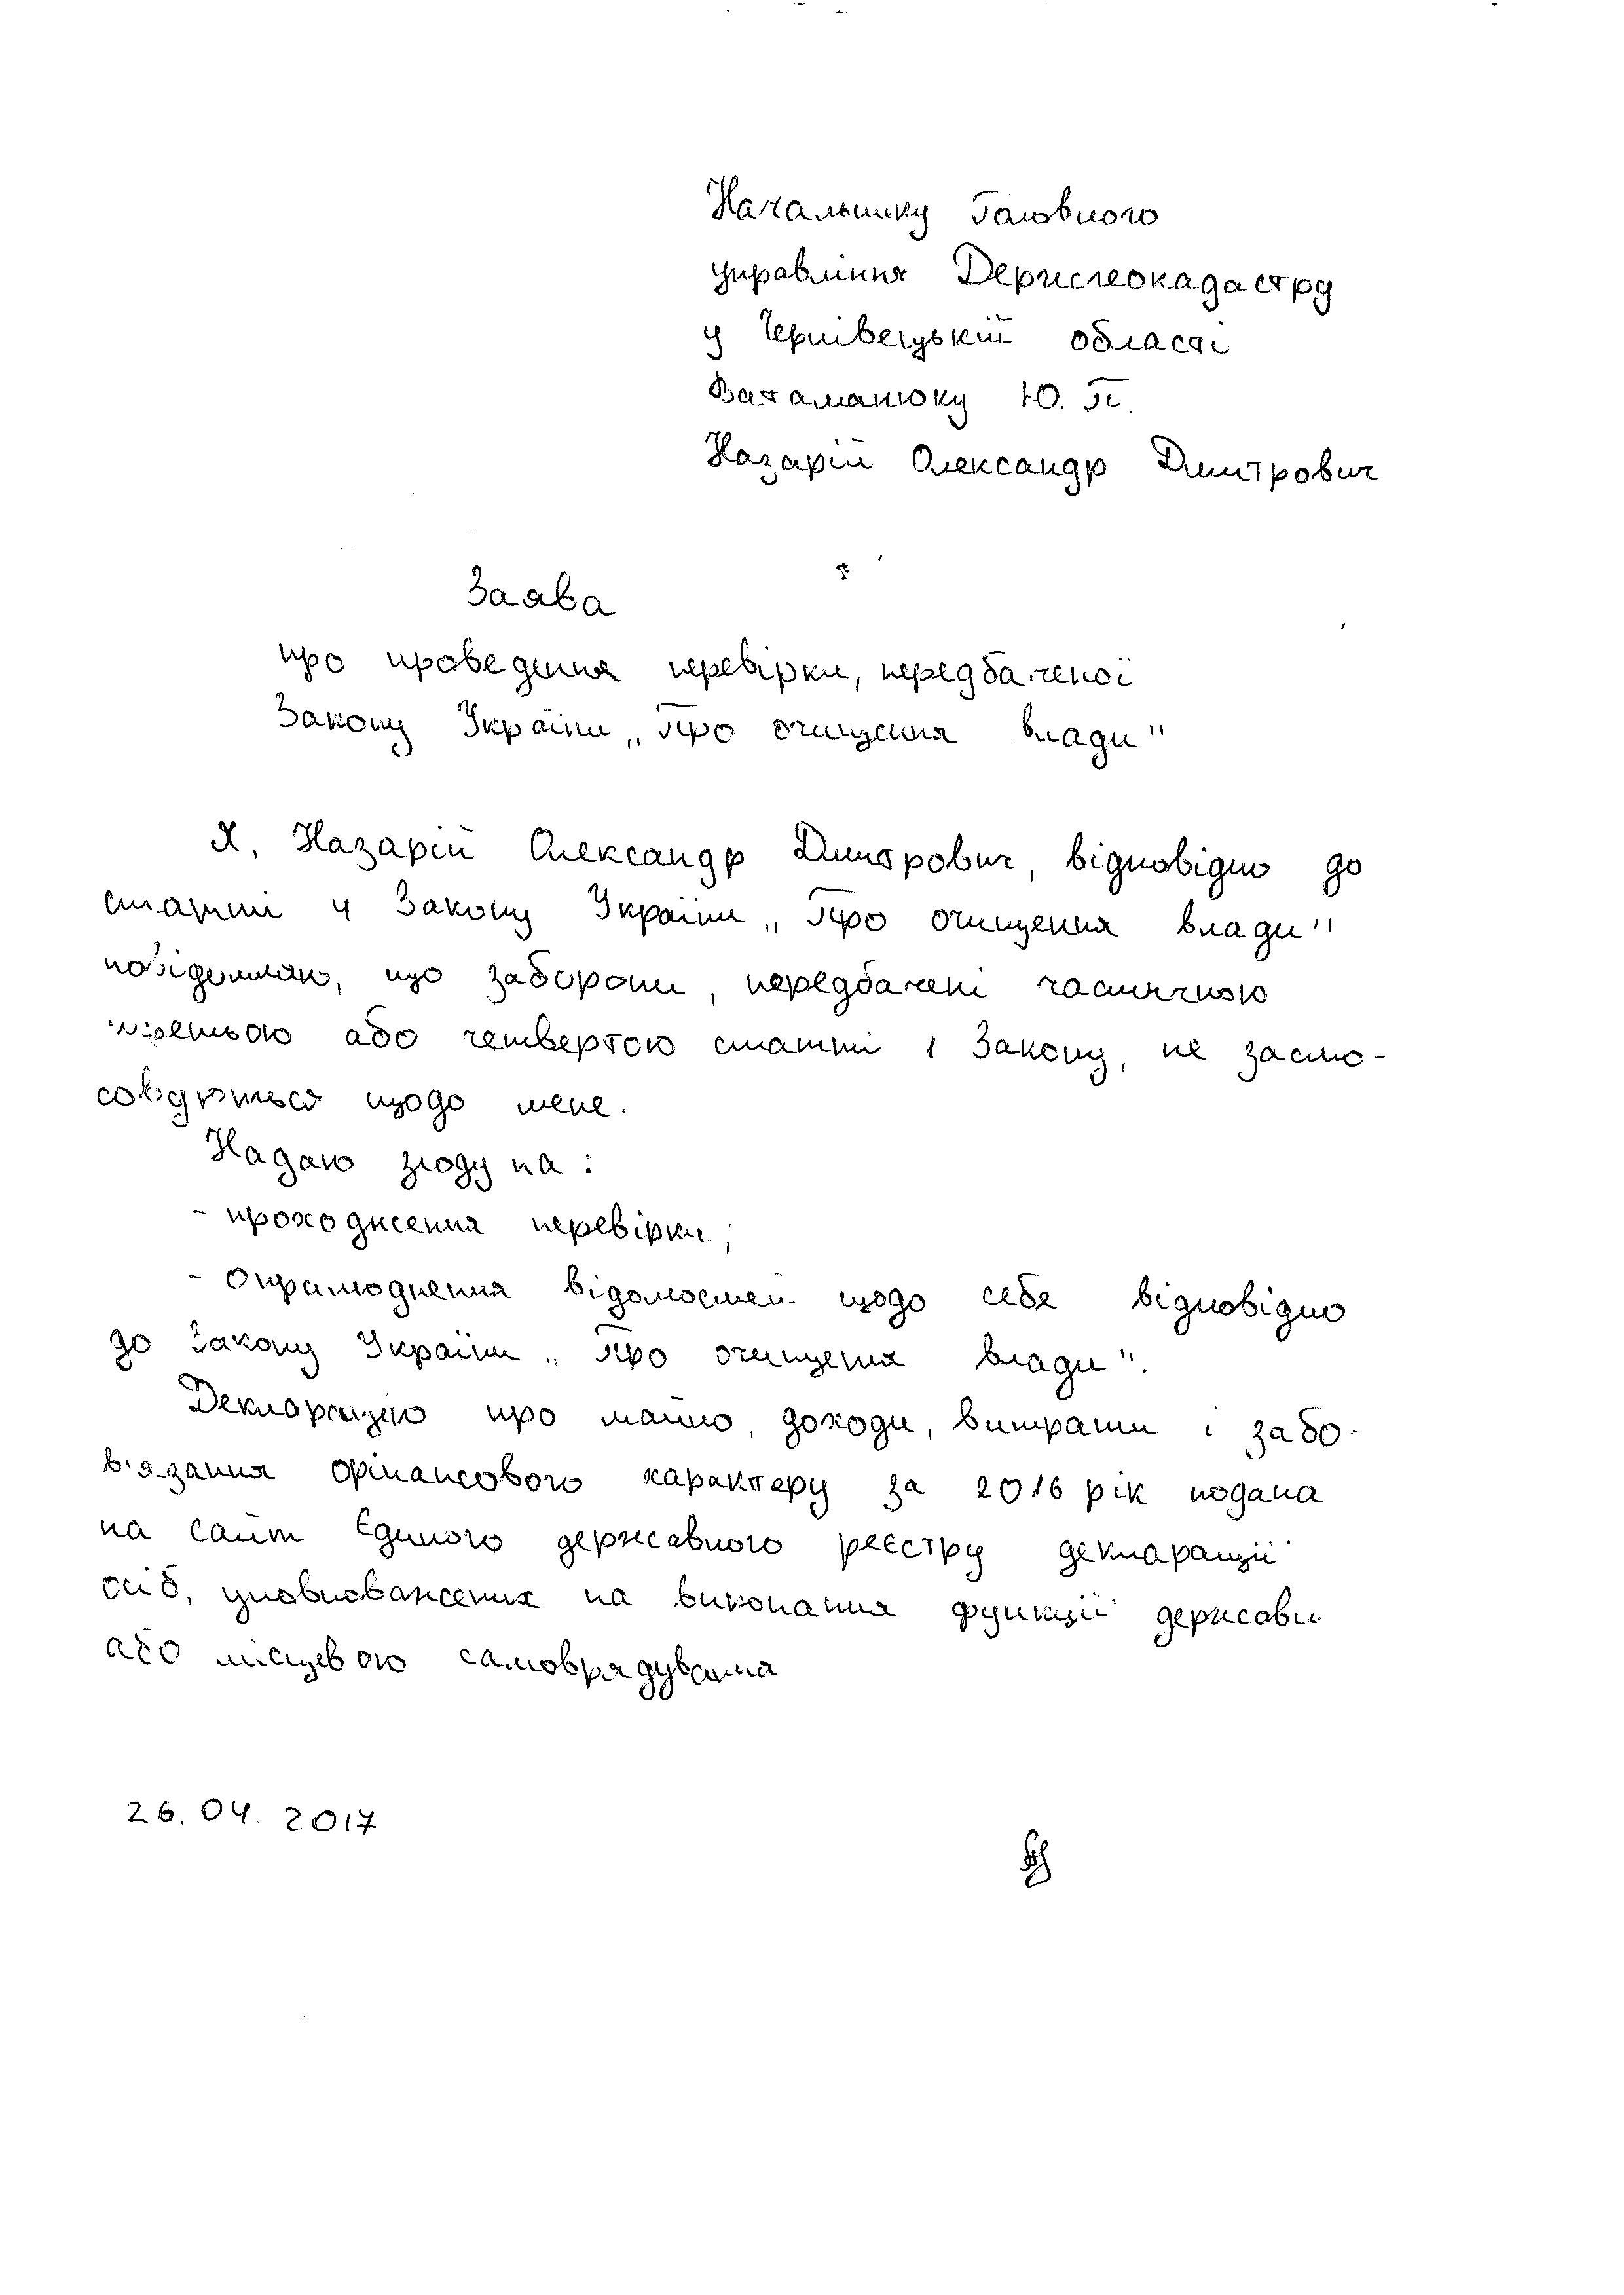 Начальнику Головного
управління Держгеокадастру
у Чернівецькій області
Ватаманюку Ю. П.
Назарій Олександр Дмитрович
Заява
про проведення перевірки, передбаченої
Закону України „Про очищення влади"
Я, Назарій Олександр Дмитрович, відповідно до
статті 4 Закону України „Про очищення влади"
повідомляю, що заборони, передбачені частиною
третьою або четвертою статті 1 Закону, не засто-
совуються щодо мене.
Надаю згоду на:
- проходження перевірки;
- оприлюднення відомостей щодо себе відповідно
до Закону України „Про очищення влади".
Декларацію про майно, доходи, витрати і зобо-
в'язання фінансового характеру за 2016 рік подана
на сайт Єдиного державного реєстру декларацій
осіб, уповноважених на виконання функцій держави
або місцевого самоврядування
26.04.2017